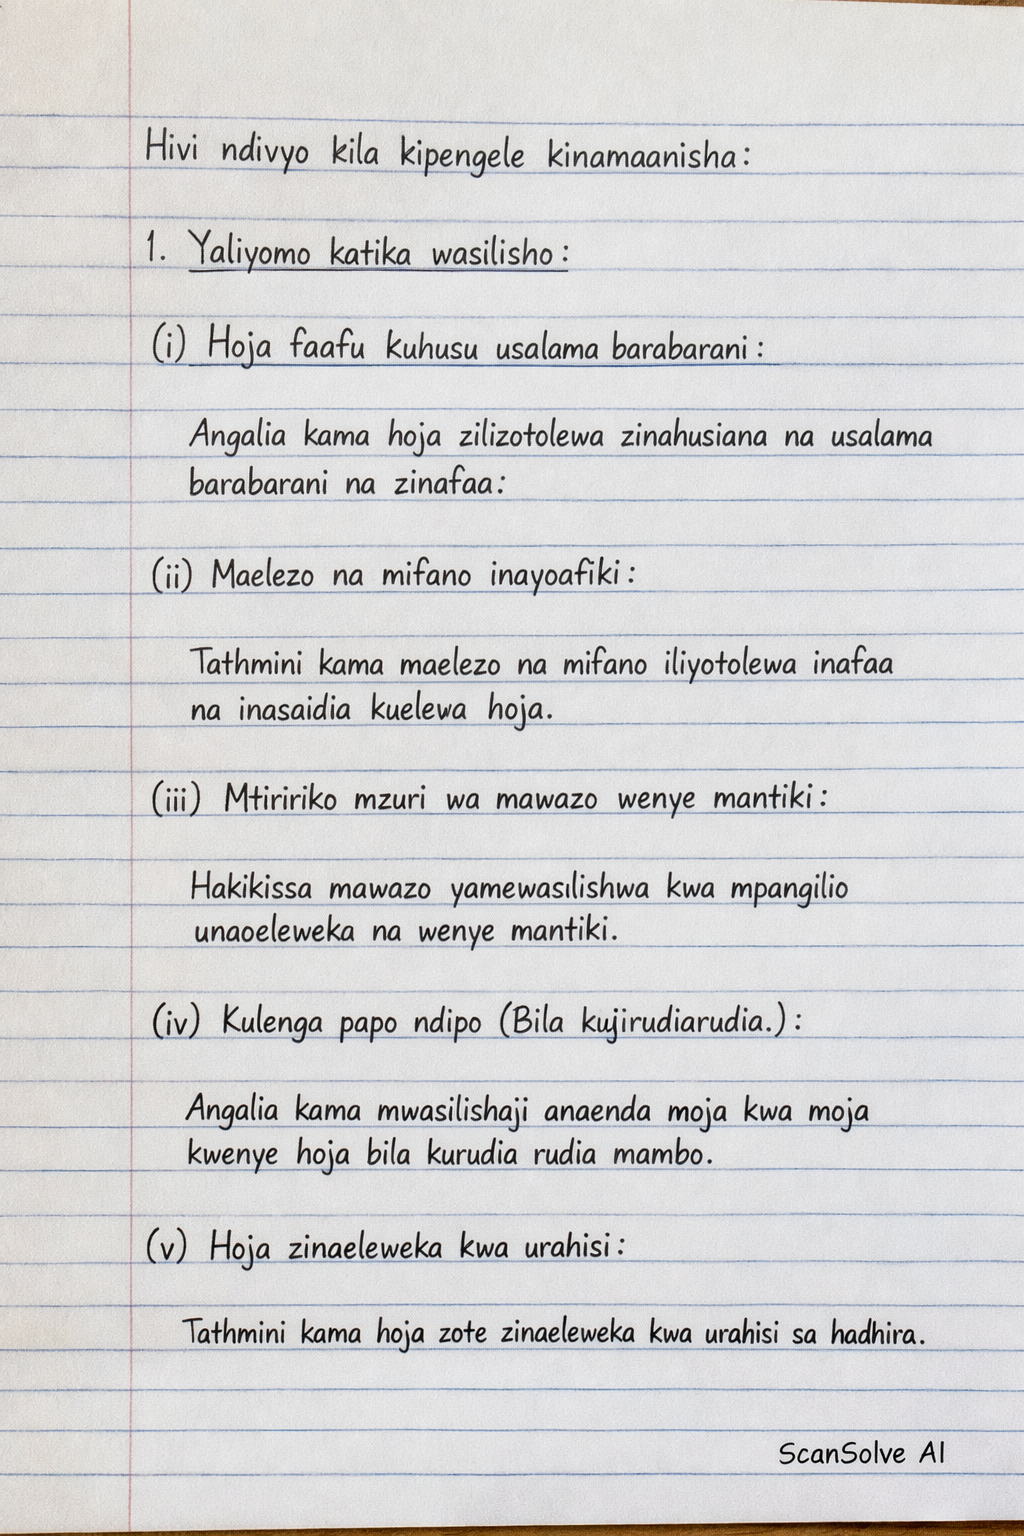 Hivi ndivyo kila kipengele kinamaanisha:
1. Yaliyomo katika wasilisho:
(i) Hoja faafu kuhusu usalama barabarani:
Angalia kama hoja zilizotolewa zinahusiana na usalama
barabarani na zinafaa:
(ii) Maelezo na mifano inayoafiki:
Tathmini kama maelezo na mifano iliyotolewa inafaa
na inasaidia kuelewa hoja.
(iii) Mtiririko mzuri wa mawazo wenye mantiki:
Hakikissa mawazo yamewasılishwa kwa mpangilio
unaoeleweka na wenye mantiki.
(iv) Kulenga papo ndipo (Bila kujirudiarudia.):
Angalia kama mwasilishaji anaenda moja kwa moja
kwenye hoja bila kurudia rudia mambo.
(v) Hoja zinaeleweka kwa urahisi:
Tathmini kama hoja zote zinaeleweka kwa urahisi sa hadhira.
ScanSolve AI